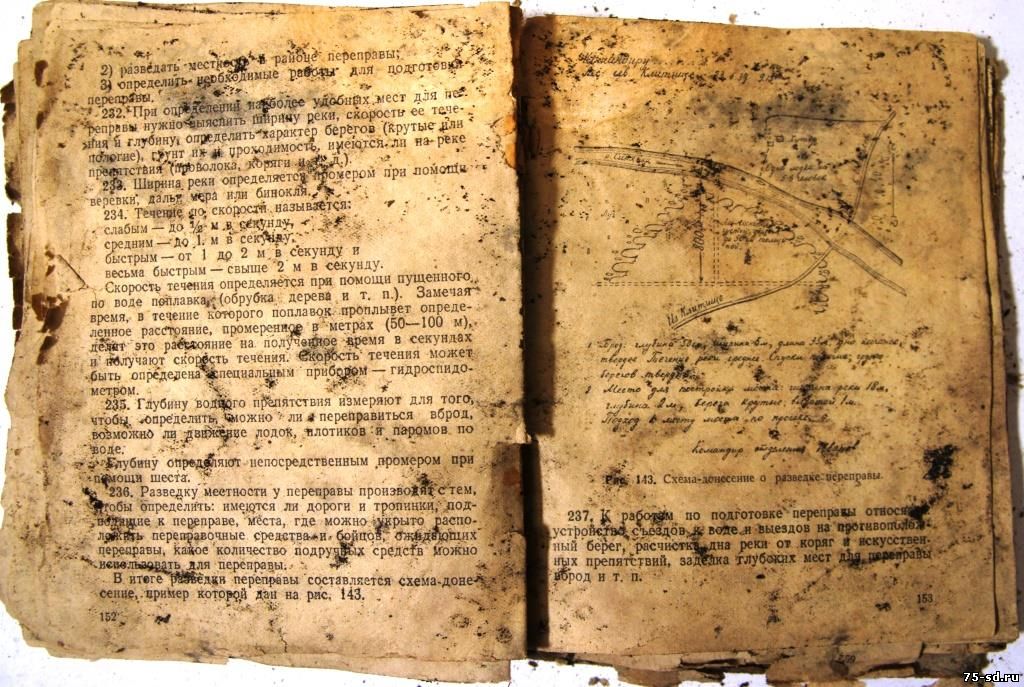 2) разведать местность в районе переправы;
3) определить необходимые работы для подготовки
переправы.
232. При определении наиболее удобных мест для пе-
реправы нужно выяснить ширину реки, скорость ее тече-
ния и глубину, определить характер берегов (крутые или
пологие), грунт их и проходимость, имеются ли на реке
препятствия (проволока, коряги и т. д.).
233. Ширина реки определяется промером при помощи
веревки, дальномера или бинокля.
234. Течение по скорости называется:
слабым — до ½ м в секунду,
средним — до 1 м в секунду,
быстрым — от 1 до 2 м в секунду и
весьма быстрым — свыше 2 м в секунду.
Скорость течения определяется при помощи пущенного
по воде поплавка (обрубка дерева и т. п.). Замечая
время, в течение которого поплавок проплывет опреде-
ленное расстояние, промеренное в метрах (50—100 м),
делят это расстояние на полученное время в секундах
и получают скорость течения. Скорость течения может
быть определена специальным прибором — гидроспидо-
метром.
235. Глубину водного препятствия измеряют для того,
чтобы определить, можно ли переправиться вброд,
возможно ли движение лодок, плотиков и паромов по
воде.
Глубину определяют непосредственным промером при
помощи шеста.
236. Разведку местности у переправы производят с тем,
чтобы определить: имеются ли дороги и тропинки, под-
водящие к переправе, места, где можно укрыто распо-
ложить переправочные средства и бойцов, ожидающих
переправы, какое количество подручных средств можно
использовать для переправы.
В итоге разведки переправы составляется схема-доне-
сение, пример которой дан на рис. 143.
152
Командиру
Клитище
Из Клитище
1 Брод: глубина ширина длина дно
твердое Течение реки среднее.
берегов твердый
2 Место для постройки моста: ширина реки 18 м,
глубина 2 м, берега крутые, высотой 1 м.
Подход к месту моста по просеке
Командир отделения
Рис. 143. Схема-донесение о разведке переправы.
237. К работам по подготовке переправы относят
устройство съездов к воде и выездов на противополож-
ный берег, расчистка дна реки от коряг и искусствен-
ных препятствий, заделка глубоких мест для переправы
вброд и т. п.
153
75-sd.ru